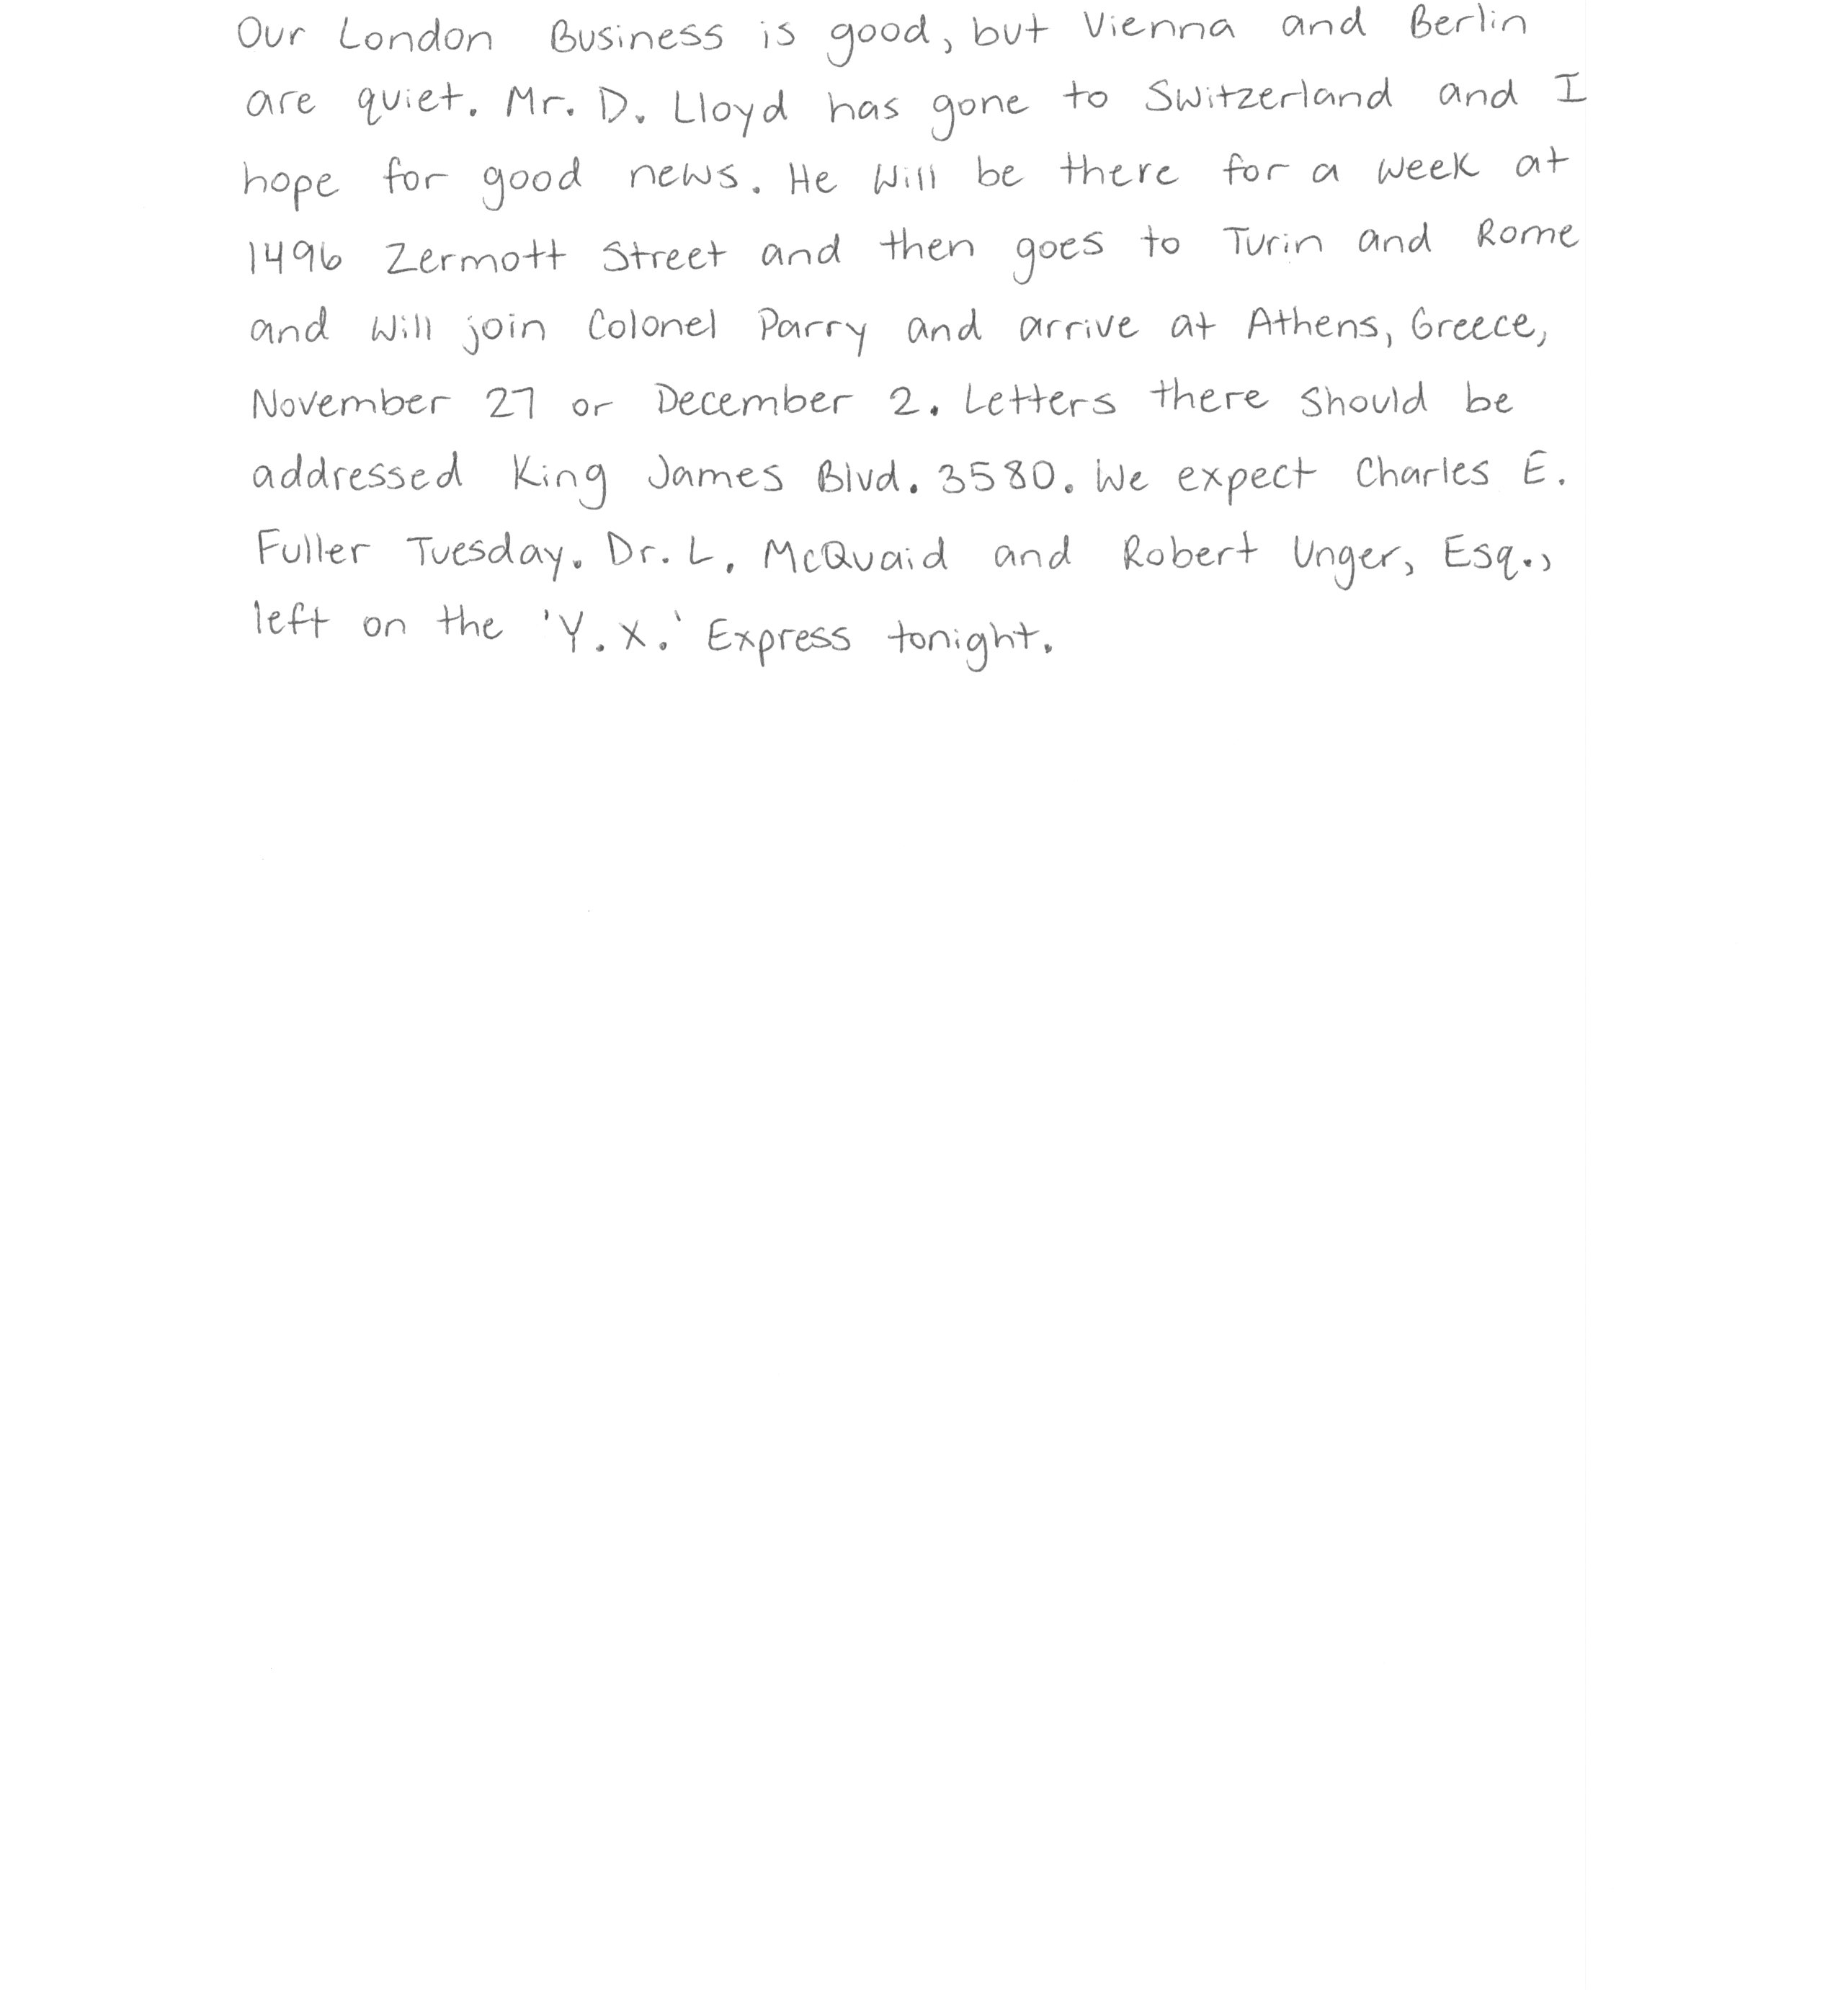 Our London Business is good, but Vienna and Berlin
are quiet. Mr. D. Lloyd has gone to Switzerland and I
hope for good news. He will be there for a week at
1496 Zermott Street and then goes to Turin and Rome
and will join Colonel Parry and arrive at Athens, Greece,
November 27 or December 2. Letters there should be
addressed King James Blvd. 3580. We expect Charles E.
Fuller Tuesday. Dr. L. McQuaid and Robert Unger, Esq.,
left on the 'Y.X.' Express tonight.